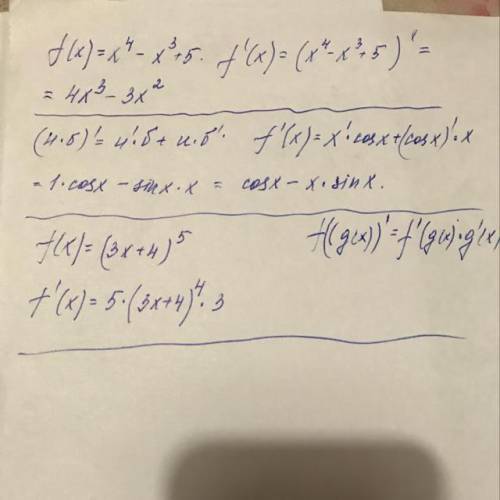 f(x)=x⁴-x³+5. f'(x)=(x⁴-x³+5)'=
=4x³-3x²
(u·б)'=u'·б+u·б'. f'(x)=x'·cosx+(cosx)'·x
=1·cosx-sinx·x= cosx-x·sinx.
f(x)=(3x+4)⁵ f((g(x))'=f'(g(x)·g'(x)
f'(x)=5·(3x+4)⁴·3